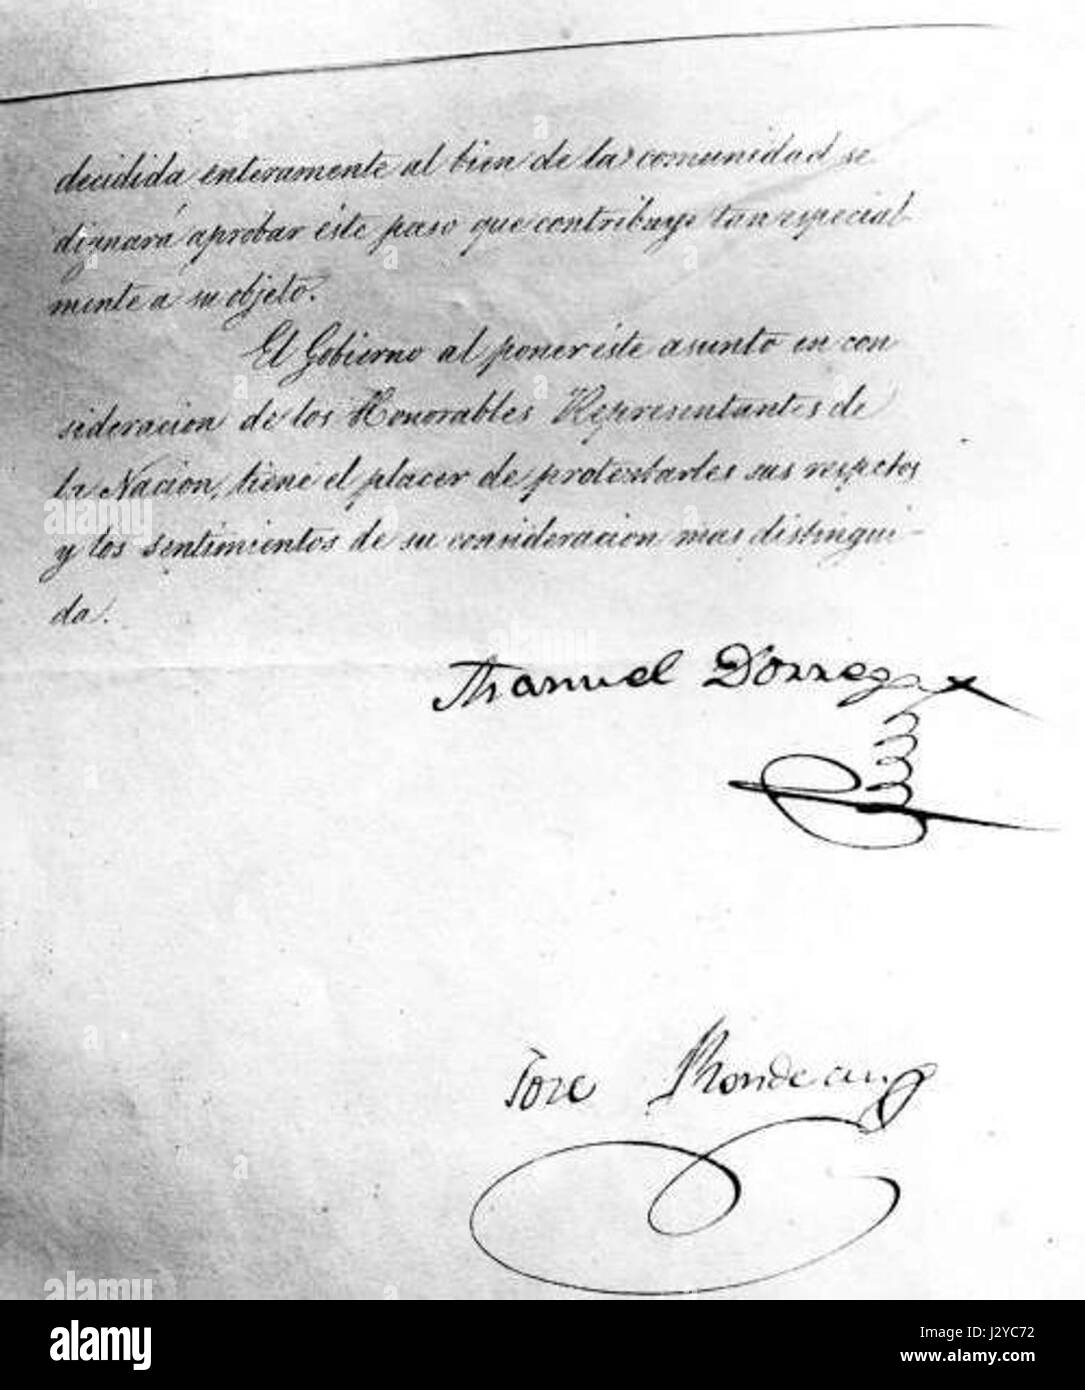 decidida enteramente al bien de la comunidad se
dignará aprobar éste paso que contribuye tan especial-
mente a su objeto.
El Gobierno al poner éste asunto en con
sideracion de los Honorables Representantes de
la Nacion, tiene el placer de protestarles sus respetos
y los sentimientos de su consideracion mas distingui-
da.
Manuel Dorrego
Jose Rondeau
alamy
alamy
Image ID: J2YC72
www.alamy.com